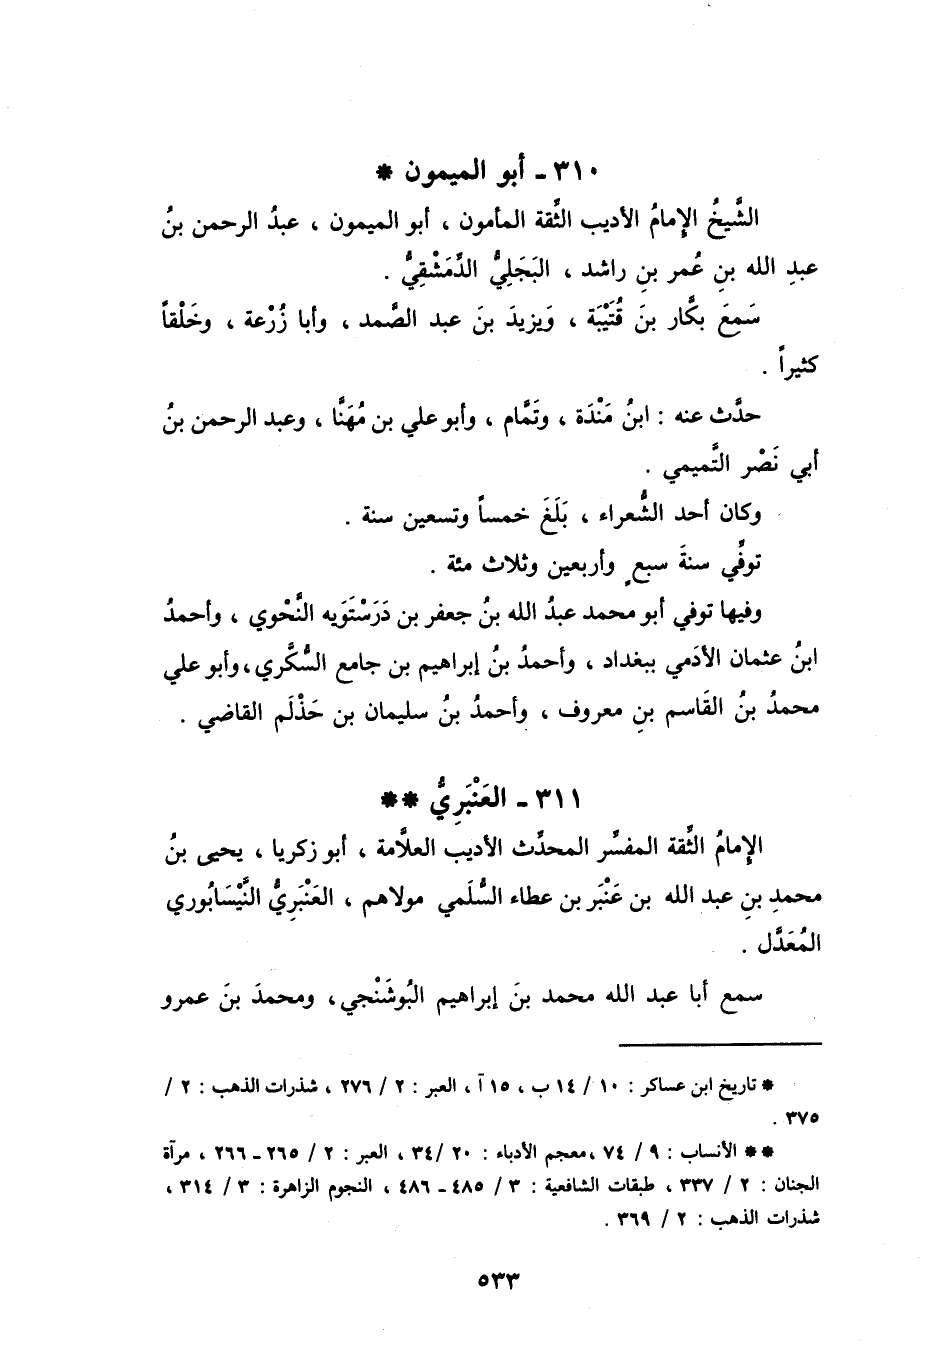 ٣١٠ ـ أبو الميمون *
الشَّيخُ الإِمامُ الأديب الثِّقة المأمون ، أبو الميمون ، عبدُ الرحمن بنُ
عبدِ الله بنِ عُمر بنِ راشد ، البَجَليُّ الدِّمَشْقِيُّ .
سَمِعَ بكَّار بنَ قُتَيْبَة ، وَيزيدَ بنَ عبد الصَّمد ، وأبا زُرْعة ، وخَلْقاً
كثيراً .
حدَّث عنه : ابنُ مَنْدَة ، وتَمَّام ، وأبو علي بن مُهَنَّا ، وعبد الرحمن بنُ
أبي نَصْر التَّميمي .
وكان أحد الشُّعراء ، بَلَغَ خمساً وتسعين سنة .
توفِّي سنةَ سبعٍ وأربعين وثلاث مئة .
وفيها توفي أبو محمد عبدُ الله بنُ جعفر بن دَرَسْتَوَيه النَّحْوي ، وأحمدُ
ابنُ عثمان الأدَمي ببغداد ، وأحمدُ بنُ إبراهيم بن جامع السُّكَّري، وأبو علي
محمدُ بنُ القَاسم بنِ معروف ، وأحمدُ بنُ سليمان بن حَذْلَم القاضي .
٣١١ ـ العَنْبَرِيُّ **
الإِمامُ الثِّقة المفسِّر المحدِّث الأديب العلاَّمة ، أبو زكريا ، يحيى بنُ
محمدِ بنِ عبد الله بن عَنْبَر بن عطاء السُّلَمي مولاهم ، العَنْبَرِيُّ النَّيْسَابُوري
المُعَدَّل .
سمع أبا عبد الله محمد بنَ إبراهيم البُوشَنْجي، ومحمدَ بنَ عمرو
* تاريخ ابن عساكر : ١٠ / ١٤ ب ، ١٥ آ ، العبر : ٢ / ٢٧٦ ، شذرات الذهب : ٢ /
٣٧٥ .
** الأنساب : ٩ / ٧٤ ،معجم الأدباء : ٢٠ /٣٤ ، العبر : ٢ / ٢٦٥ ـ ٢٦٦ ، مرآة
الجنان : ٢ / ٣٣٧ ، طبقات الشافعية : ٣ / ٤٨٥ ـ ٤٨٦ ، النجوم الزاهرة : ٣ / ٣١٤ ،
شذرات الذهب : ٢ / ٣٦٩ .
٥٣٣